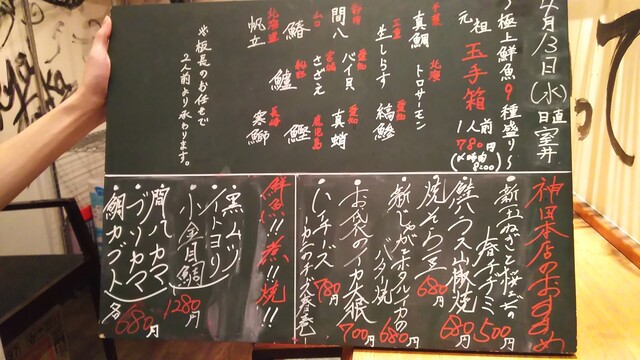 4月13日(水)
日直 室井
~極上鮮魚9種盛り~
元祖 玉手箱 1人前 780円
千葉 真鯛
北海 トロサーモン
三重 生しらす
愛知 縞鯵
静岡 間八
愛知 バイ貝
愛知 真蛸
山口 鰆
宮崎 さざえ
鹿児島 鰹
鱧
北海道 帆立
長崎 寒鰤
※板長のお任せで
2人前より承わります。
神田本店のおすすめ
・新玉ねぎと桜エビの
春ケチミ 500円
・鯖ハラス山椒焼 680円
・焼そら豆 680円
・新じゃがとホタルイカの
バター焼 680円
・お袋のイカ大根 700円
・ハイチーズ 780円
~カニのチーズ春巻~
鮮魚!!煮!!焼!!
・黒ムツ
・イトヨリ
・小金目鯛 1280円
・間八カマ
・ブリカマ
・鯛カブト 各680円